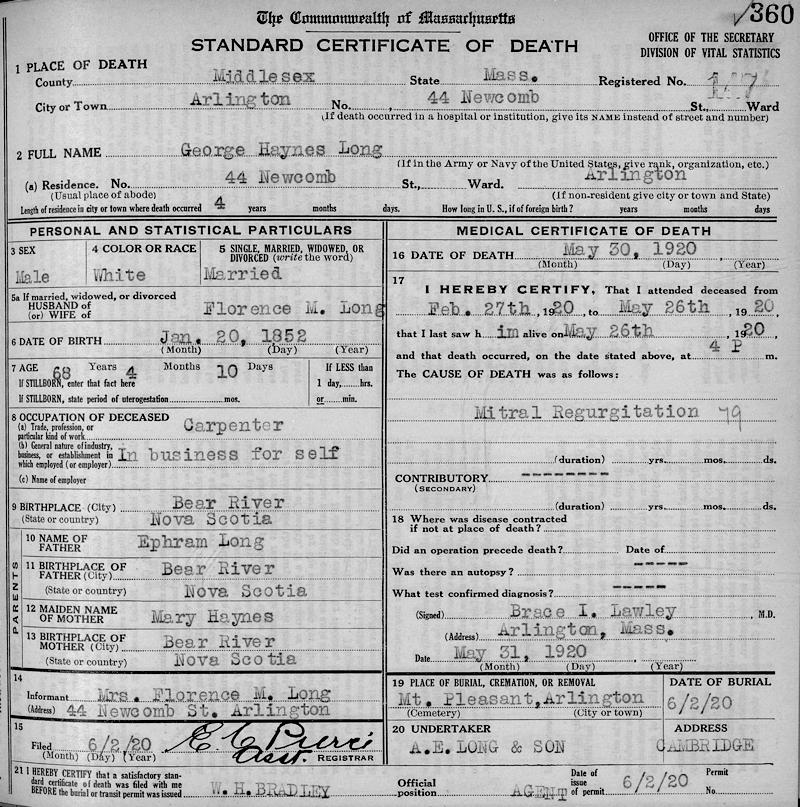 360
The Commonwealth of Massachusetts
STANDARD CERTIFICATE OF DEATH
OFFICE OF THE SECRETARY
DIVISION OF VITAL STATISTICS
1 PLACE OF DEATH
County Middlesex State Mass. Registered No.
City or Town Arlington No. , 44 Newcomb St., Ward
(If death occurred in a hospital or institution, give its NAME instead of street and number)
2 FULL NAME George Haynes Long
(If in the Army or Navy of the United States, give rank, organization, etc.)
(a) Residence. No. 44 Newcomb St., Ward. Arlington
(Usual place of abode) (If non-resident give city or town and State)
Length of residence in city or town where death occurred 4 years months days. How long in U. S., if of foreign birth? years months days
PERSONAL AND STATISTICAL PARTICULARS
3 SEX
Male
4 COLOR OR RACE
White
5 SINGLE, MARRIED, WIDOWED, OR
DIVORCED (write the word)
Married
5a If married, widowed, or divorced
HUSBAND of
(or) WIFE of Florence M. Long
6 DATE OF BIRTH Jan. 20, 1852
(Month) (Day) (Year)
7 AGE 68 Years 4 Months 10 Days
If LESS than
1 day, hrs.
or min.
If STILLBORN, enter that fact here
If STILLBORN, state period of uterogestation mos.
8 OCCUPATION OF DECEASED
(a) Trade, profession, or
particular kind of work Carpenter
(b) General nature of industry,
business, or establishment in
which employed (or employer) In business for self
(c) Name of employer
9 BIRTHPLACE (City) Bear River
(State or country) Nova Scotia
PARENTS
10 NAME OF
FATHER Ephram Long
11 BIRTHPLACE OF
FATHER (City) Bear River
(State or country) Nova Scotia
12 MAIDEN NAME
OF MOTHER Mary Haynes
13 BIRTHPLACE OF
MOTHER (City) Bear River
(State or country) Nova Scotia
14
Informant Mrs. Florence M. Long
(Address) 44 Newcomb St. Arlington
15
Filed 6/2/20 E. C. Peirce
(Month) (Day) (Year) Asst. REGISTRAR
MEDICAL CERTIFICATE OF DEATH
16 DATE OF DEATH May 30, 1920
(Month) (Day) (Year)
17
I HEREBY CERTIFY, That I attended deceased from
Feb. 27th , 1920, to May 26th , 1920,
that I last saw him alive on May 26th , 1920,
and that death occurred, on the date stated above, at 4 P m.
The CAUSE OF DEATH was as follows:
Mitral Regurgitation 79
(duration) yrs. mos. ds.
CONTRIBUTORY --------
(SECONDARY)
(duration) yrs. mos. ds.
18 Where was disease contracted
if not at place of death?
Did an operation precede death? Date of
Was there an autopsy? -----
What test confirmed diagnosis? -----
(Signed) Brace I. Lawley , M.D.
(Address) Arlington, Mass.
Date May 31, 1920
(Month) (Day) (Year)
19 PLACE OF BURIAL, CREMATION, OR REMOVAL
Mt. Pleasant, Arlington
(Cemetery) (City or town)
DATE OF BURIAL
6/2/20
20 UNDERTAKER
A.E. LONG & SON
ADDRESS
CAMBRIDGE
21 I HEREBY CERTIFY that a satisfactory stan-
dard certificate of death was filed with me
BEFORE the burial or transit permit was issued W. H. BRADLEY
Official
position AGENT
Date of
issue
of permit 6/2/20
Permit
No.